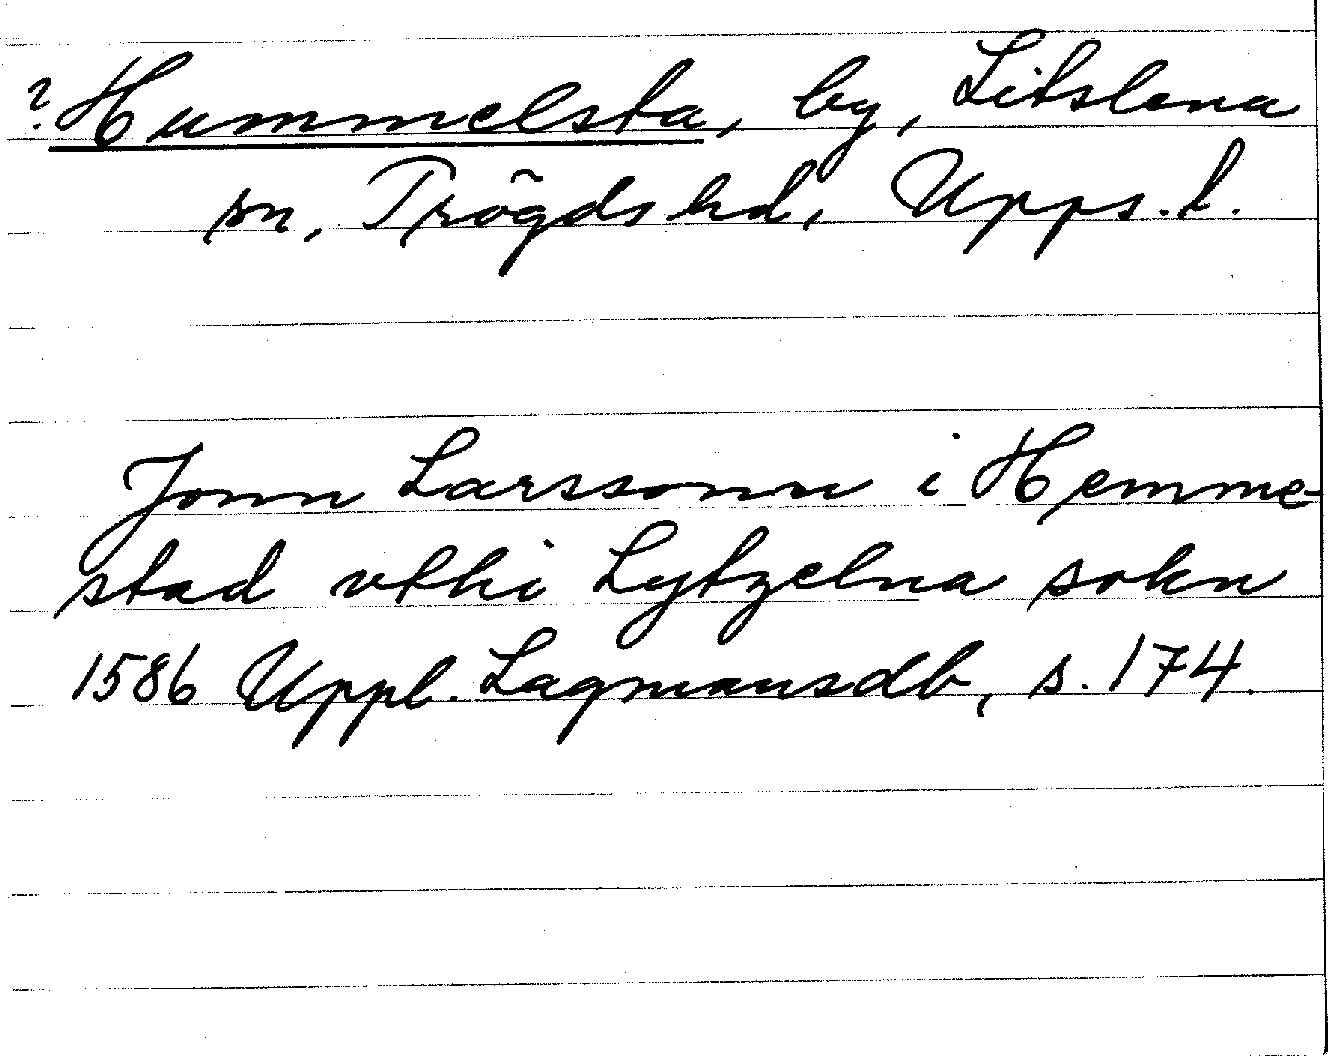 ? Hummelsta, by, Litslena
sn, Trögds hd, Upps. l.
Jonn Larssonn i Hemme-
stad vthi Lytzelna sokn
1586 Uppl. Lagmansdb, s. 174.